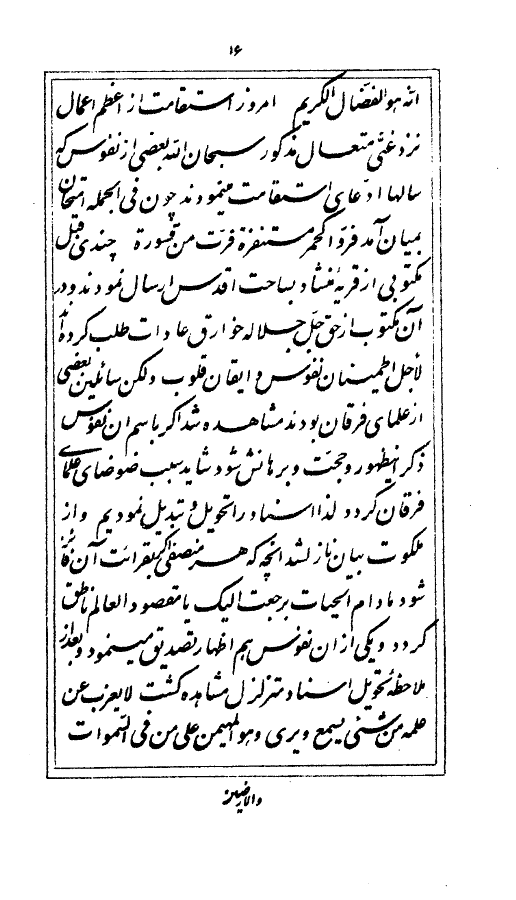 ۱۶
انه هو الفضّال الکریم امروز استقامت از اعظم اعمال
نزد غنیّ متعال مذکور سبحان الله بعضی از نفوس که
سالها ادّعای استقامت مینمودند چون فی الجمله امتحان
بمیان آمد فرّوا کحمر مستنفرة فرّت من قسورة چندی قبل
مکتوبی از قریهٔ منشاد بساحت اقدس ارسال نمودند و در
آن مکتوب از حق جلّ جلاله خوارق عادات طلب کرده‌اند
لأجل اطمینان نفوس و ایقان قلوب ولکن سائلین بعضی
از علمای فرقان بودند مشاهده شد اگر باسم ان نفوس
ذکر اینظهور و حجّت و برهانش شود شاید سبب ضوضای علمای
فرقان گردد لذا اسناد را تحویل و تبدیل نمودیم و از
ملکوت بیان نازل شد انچه که هر منصفی اگر بقرائت آن فائز
شود مادام الحیات برجعت الیک یا مقصود العالم ناطق
گردد و یکی از ان نفوس هم اظهار تصدیق مینمود و بعد از
ملاحظهٔ تحویل اسناد متزلزل مشاهده گشت لا یعزب عن
علمه من شئی یسمع و یری و هو المهیمن علی من فی السّموات
والارضین